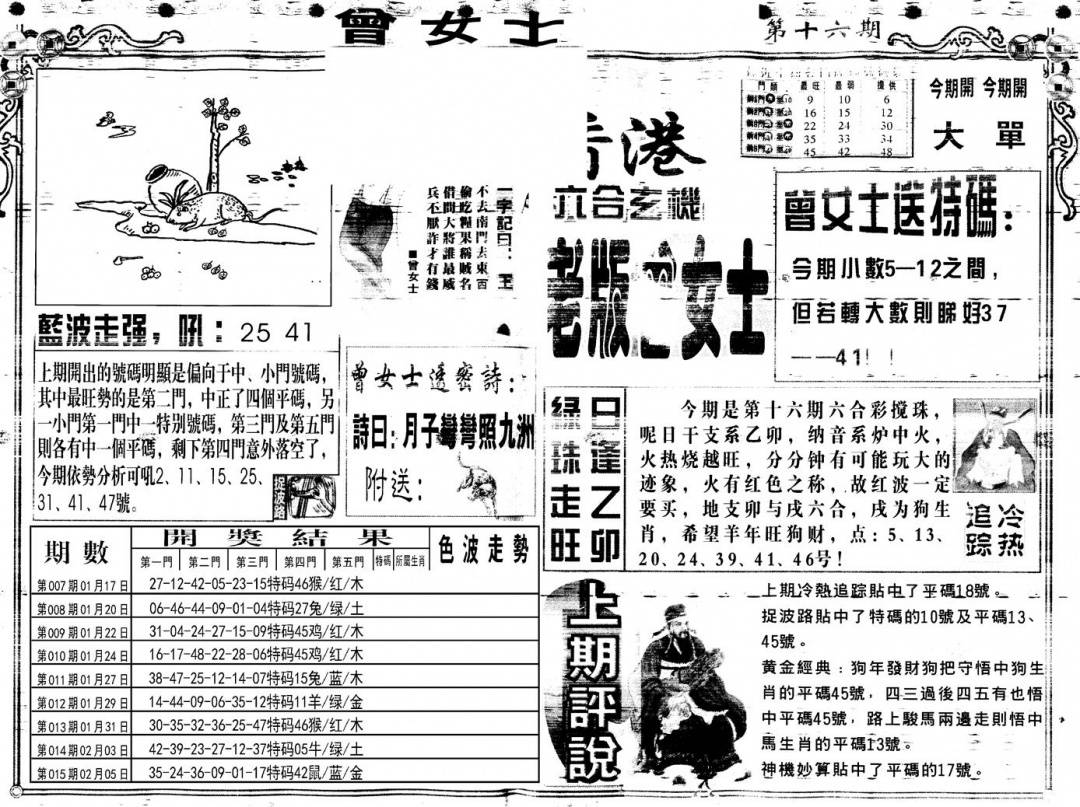 曾女士
第十六期
門類 最旺 最弱 提供
9 10 6
16 15 12
22 24 30
35 33 34
45 42 48
今期開 今期開
大 單
香港
六合玄機
老版曾女士
一字記曰：王
不去南門去東百
偷吃糧果稱賊名
借問大將誰最威
兵不厭詐才有錢
■曾女士
曾女士送特碼：
今期小數5—12之間，
但若轉大數則睇好37
——41！！
藍波走强，吼：25 41
上期開出的號碼明顯是偏向于中、小門號碼，
其中最旺勢的是第二門，中正了四個平碼，另
一小門第一門中一特别號碼，第三門及第五門
則各有中一個平碼，剩下第四門意外落空了，
今期依勢分析可吼2、11、15、25、
31、41、47號。
捉波路
曾女士透密詩：
詩曰：月子彎彎照九洲
附送：
口逢乙卯
綠珠走旺
今期是第十六期六合彩搅珠，
呢日干支系乙卯，纳音系炉中火，
火热烧越旺，分分钟有可能玩大的
迹象，火有红色之称，故红波一定
要买，地支卯与戌六合，戌为狗生
肖，希望羊年旺狗财，点：5、13、
20、24、39、41、46号！
冷热
追踪
期數 開獎結果 色波走勢
第一門 第二門 第三門 第四門 第五門 特碼 所屬生肖
第007期01月17日 27-12-42-05-23-15特码46猴/红/木
第008期01月20日 06-46-44-09-01-04特码27兔/绿/土
第009期01月22日 31-04-24-27-15-09特码45鸡/红/木
第010期01月24日 16-17-48-22-28-06特码45鸡/红/木
第011期01月27日 38-47-25-12-14-07特码15兔/蓝/木
第012期01月29日 14-44-09-06-35-12特码11羊/绿/金
第013期01月31日 30-35-32-36-25-47特码46猴/红/木
第014期02月03日 42-39-23-27-12-37特码05牛/绿/土
第015期02月05日 35-24-36-09-01-17特码42鼠/蓝/金
上期評說
上期冷熱追踪貼中了平碼18號。
捉波路貼中了特碼的10號及平碼13、
45號。
黄金經典：狗年發財狗把守悟中狗生
肖的平碼45號，四三過後四五有也悟
中平碼45號，路上駿馬兩邊走則悟中
馬生肖的平碼13號。
神機妙算貼中了平碼的17號。